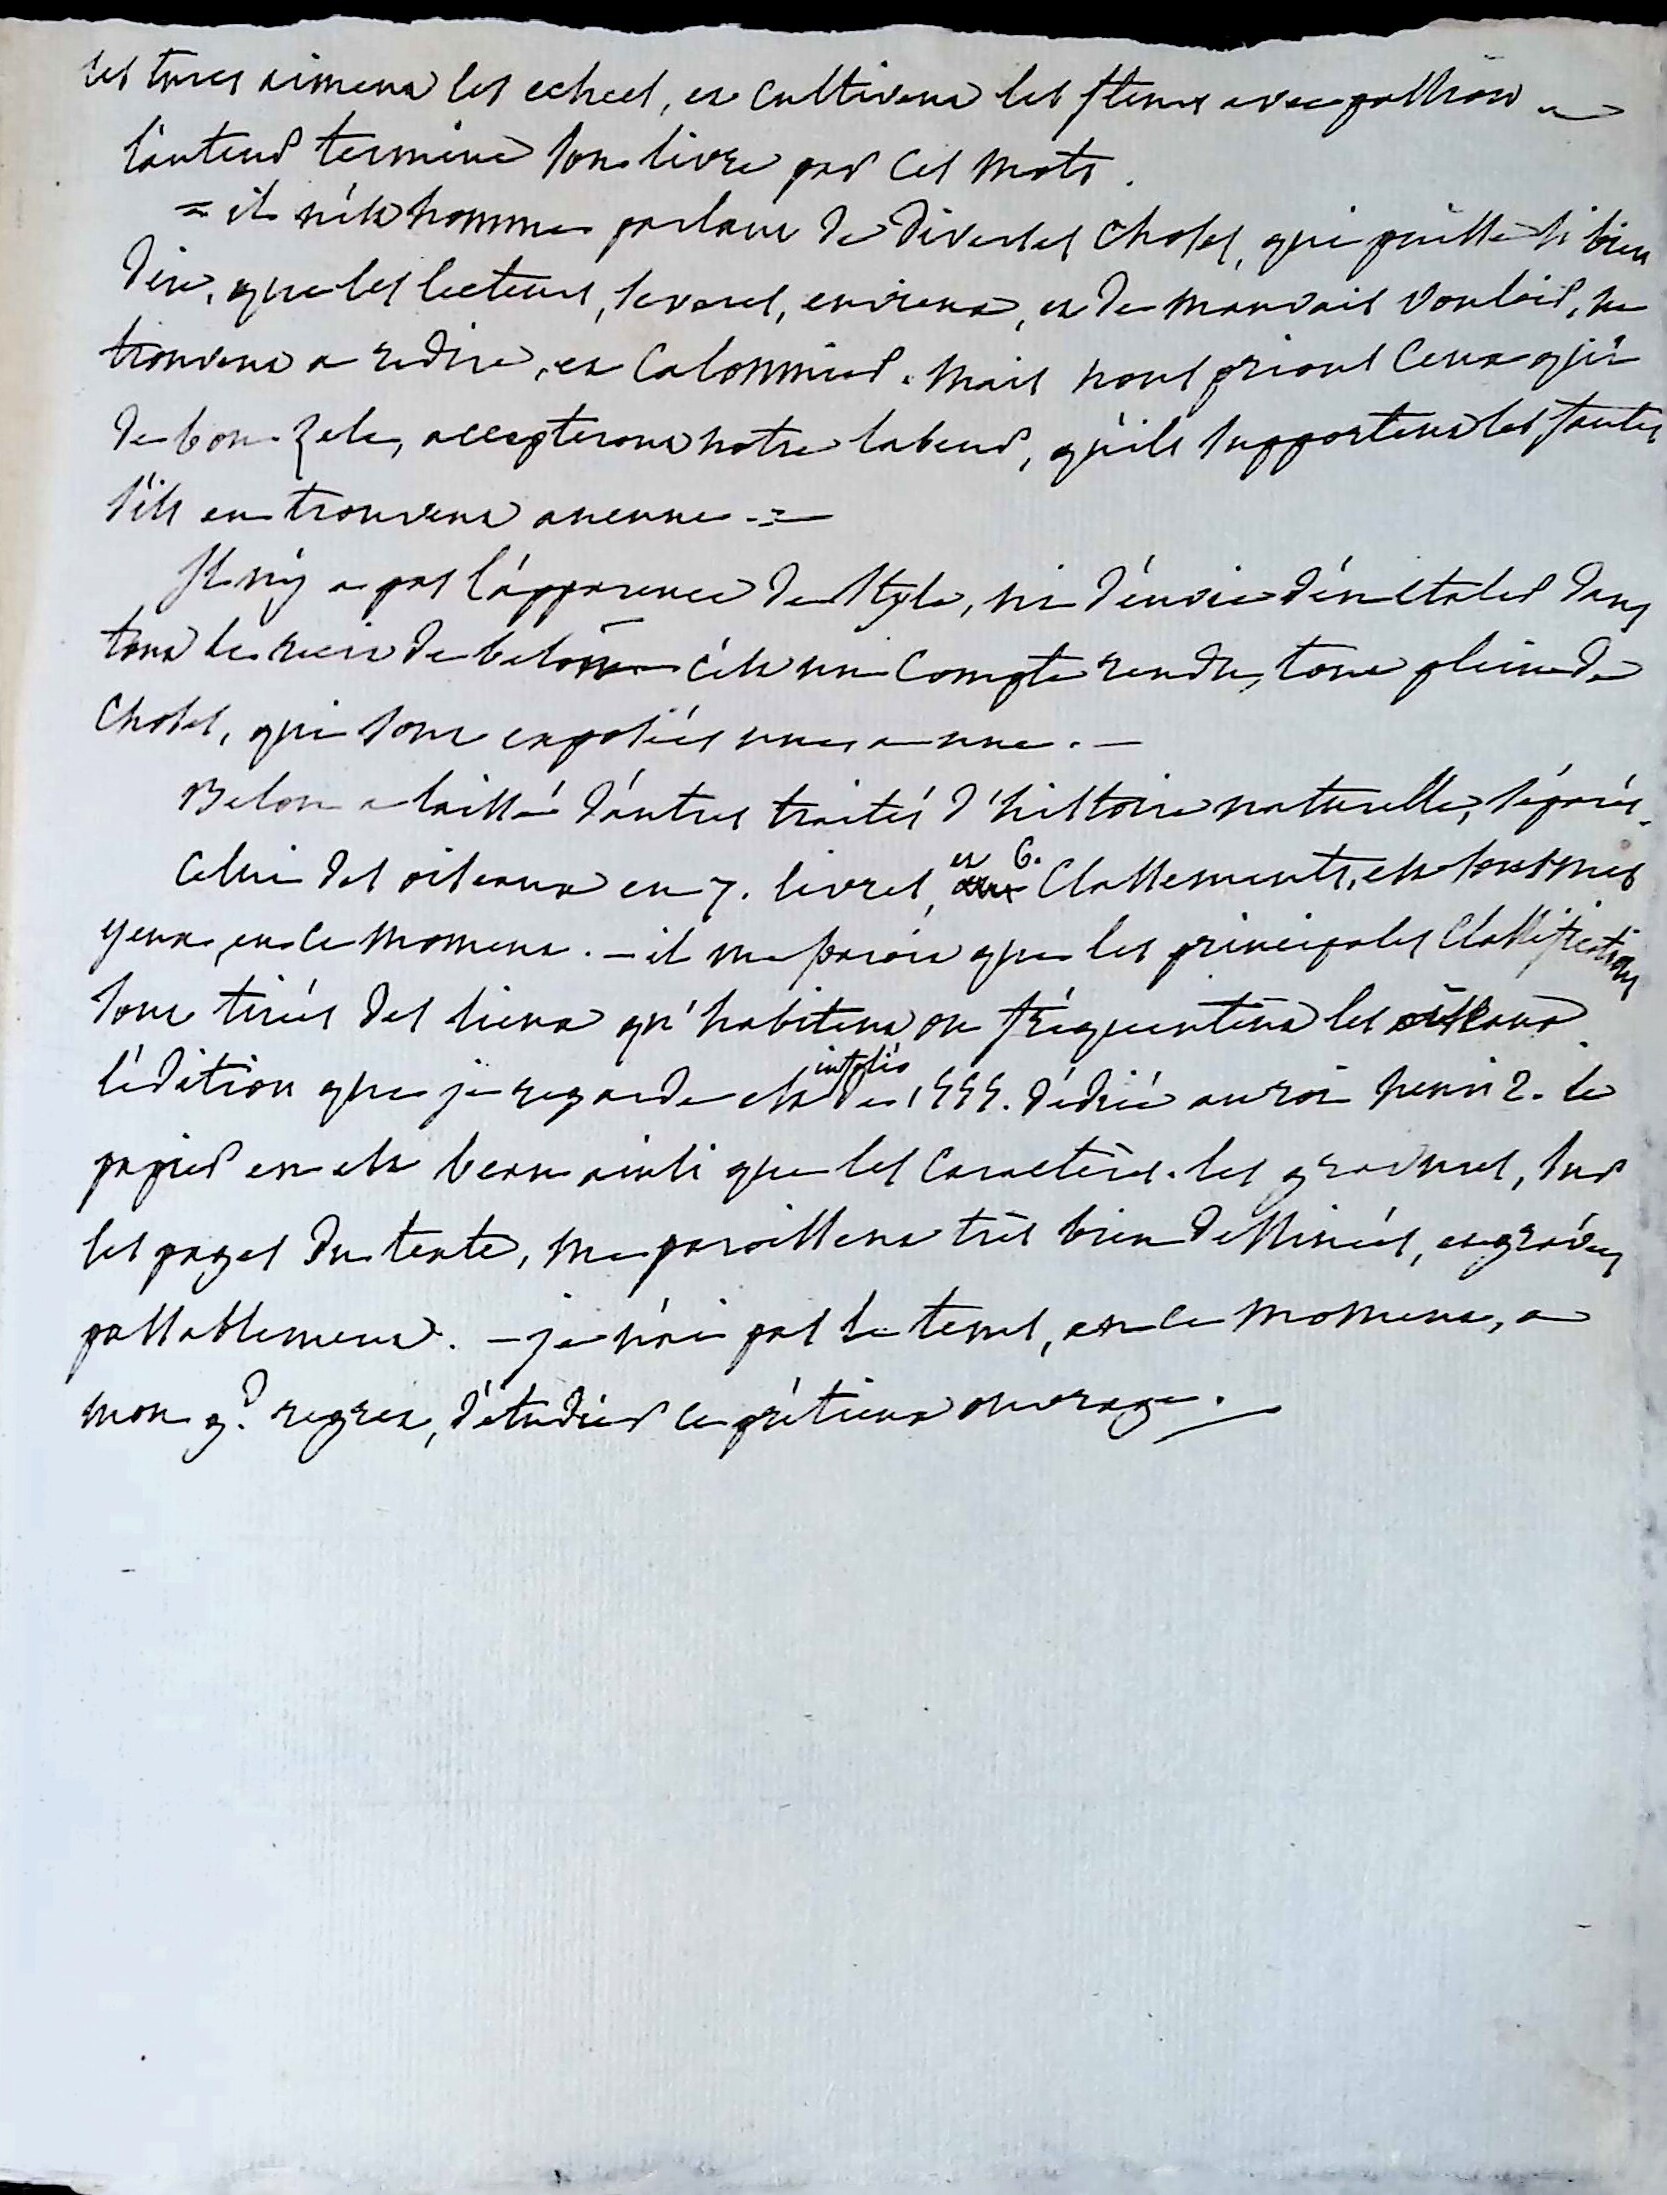 les turcs aiment les echecs, et cultivent les fleurs avec passion
l'auteur termine son livre par ces mots.
= il n'est homme parlant de diverses choses, qui puisse si bien
dire, que les lecteurs, severes, envieux, et de mauvais vouloir, ne
trouvent a redire, et calomnier. mais nous prions ceux qui
de bon zele, accepteront notre labeur, qu'ils supportent les fautes
s'ils en trouvent aucune. =
Il n'y a pas l'apparence de style, ni d'envie d'en etaler dans
tout le recit de belon c'est un compte rendu, tout plein de
choses, qui sont exposées une a une. —
Belon a laissé d'autres traités d'histoire naturelle, séparés.
Celui des oiseaux en 7. livres, et 6. Classements, est sous mes
yeux, en ce moment. — il me paroit que les principales classifications
sont tirées des lieux qu'habitent ou fréquentent les oiseaux.
l'édition que je regarde est in folio de 1555. dédié au roi henri 2. le
papier en est beau ainsi que les caractères. les gravures, sur
les pages du texte, me paroissent très bien dessinées, et gravées
passablement. — je n'ai pas le tems, en ce moment, a
mon gd. regret, d'étudier ce prétieux ouvrage.